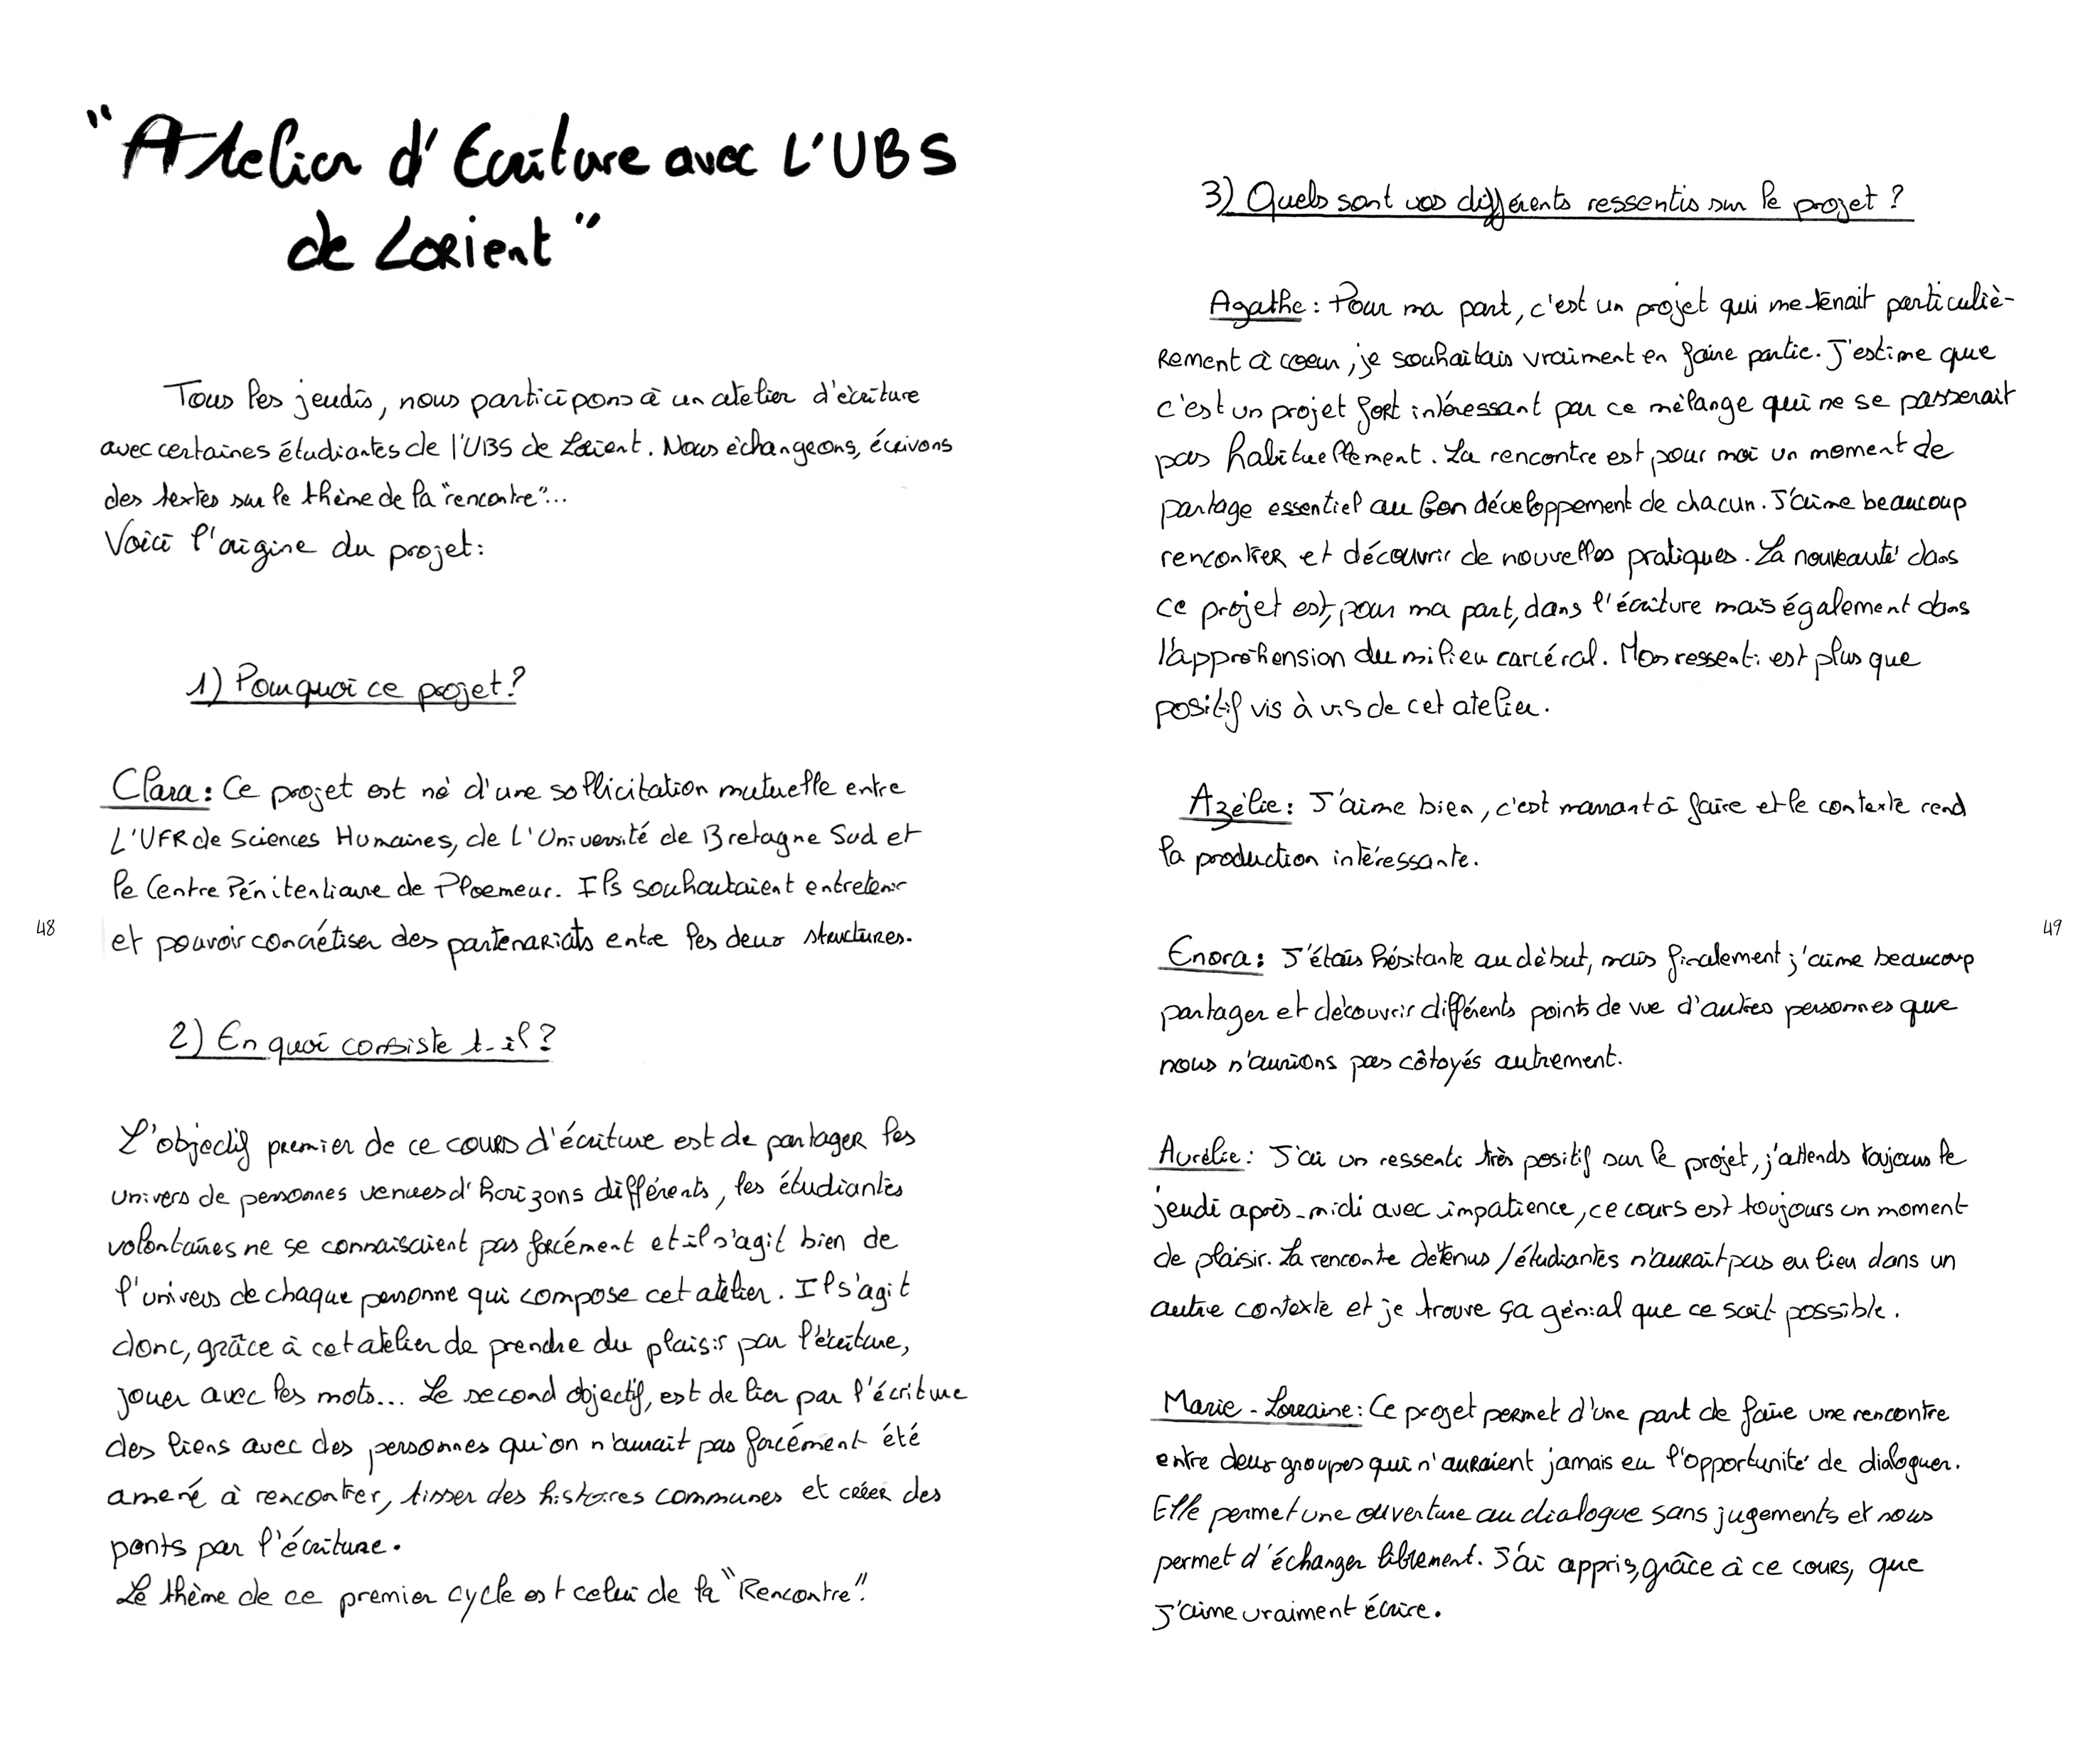 "Atelier d'Ecriture avec L'UBS
de Lorient"
Tous les jeudis, nous participons à un atelier d'écriture
avec certaines étudiantes de l'UBS de Lorient. Nous échangeons, écrivons
des textes sur le thème de la "rencontre"...
Voici l'origine du projet:
1) Pourquoi ce projet?
Clara: Ce projet est né d'une sollicitation mutuelle entre
L'UFR de Sciences Humaines, de L'Université de Bretagne Sud et
le Centre Pénitentiaire de Ploemeur. Ils souhaitaient entretenir
et pouvoir concrétiser des partenariats entre les deux structures.
48
2) En quoi consiste t-il?
L'objectif premier de ce cours d'écriture est de partager les
univers de personnes venues d'horizons différents, les étudiantes
volontaires ne se connaisaient pas forcément et il s'agit bien de
l'univers de chaque personne qui compose cet atelier. Il s'agit
donc, grâce à cet atelier de prendre du plaisir par l'écriture,
jouer avec les mots... Le second objectif, est de lier par l'écriture
des liens avec des personnes qu'on n'aurait pas forcément été
amené à rencontrer, tisser des histoires communes et créer des
ponts par l'écriture.
Le thème de ce premier cycle est celui de la "Rencontre".
3) Quels sont vos différents ressentis sur le projet?
Agathe: Pour ma part, c'est un projet qui me tenait particuliè-
rement à coeur, je souhaitais vraiment en faire partie. J'estime que
c'est un projet fort intéressant par ce mélange qui ne se passerait
pas habituellement. La rencontre est pour moi un moment de
partage essentiel au bon développement de chacun. J'aime beaucoup
rencontrer et découvrir de nouvelles pratiques. La nouveauté dans
ce projet est, pour ma part, dans l'écriture mais également dans
l'appréhension du milieu carcéral. Mon ressenti est plus que
positif vis à vis de cet atelier.
Azélie: J'aime bien, c'est marrant à faire et le contexte rend
la production intéressante.
Enora: J'étais hésitante au début, mais finalement j'aime beaucoup
partager et découvrir différents points de vue d'autres personnes que
nous n'aurions pas côtoyés autrement.
49
Aurélie: J'ai un ressenti très positif sur le projet, j'attends toujours le
jeudi après-midi avec impatience, ce cours est toujours un moment
de plaisir. La rencontre détenus/étudiantes n'aurait pas eu lieu dans un
autre contexte et je trouve ça génial que ce soit possible.
Marie-Lorraine: Ce projet permet d'une part de faire une rencontre
entre deux groupes qui n'auraient jamais eu l'opportunité de dialoguer.
Elle permet une ouverture au dialogue sans jugements et nous
permet d'échanger librement. J'ai appris, grâce à ce cours, que
J'aime vraiment écrire.